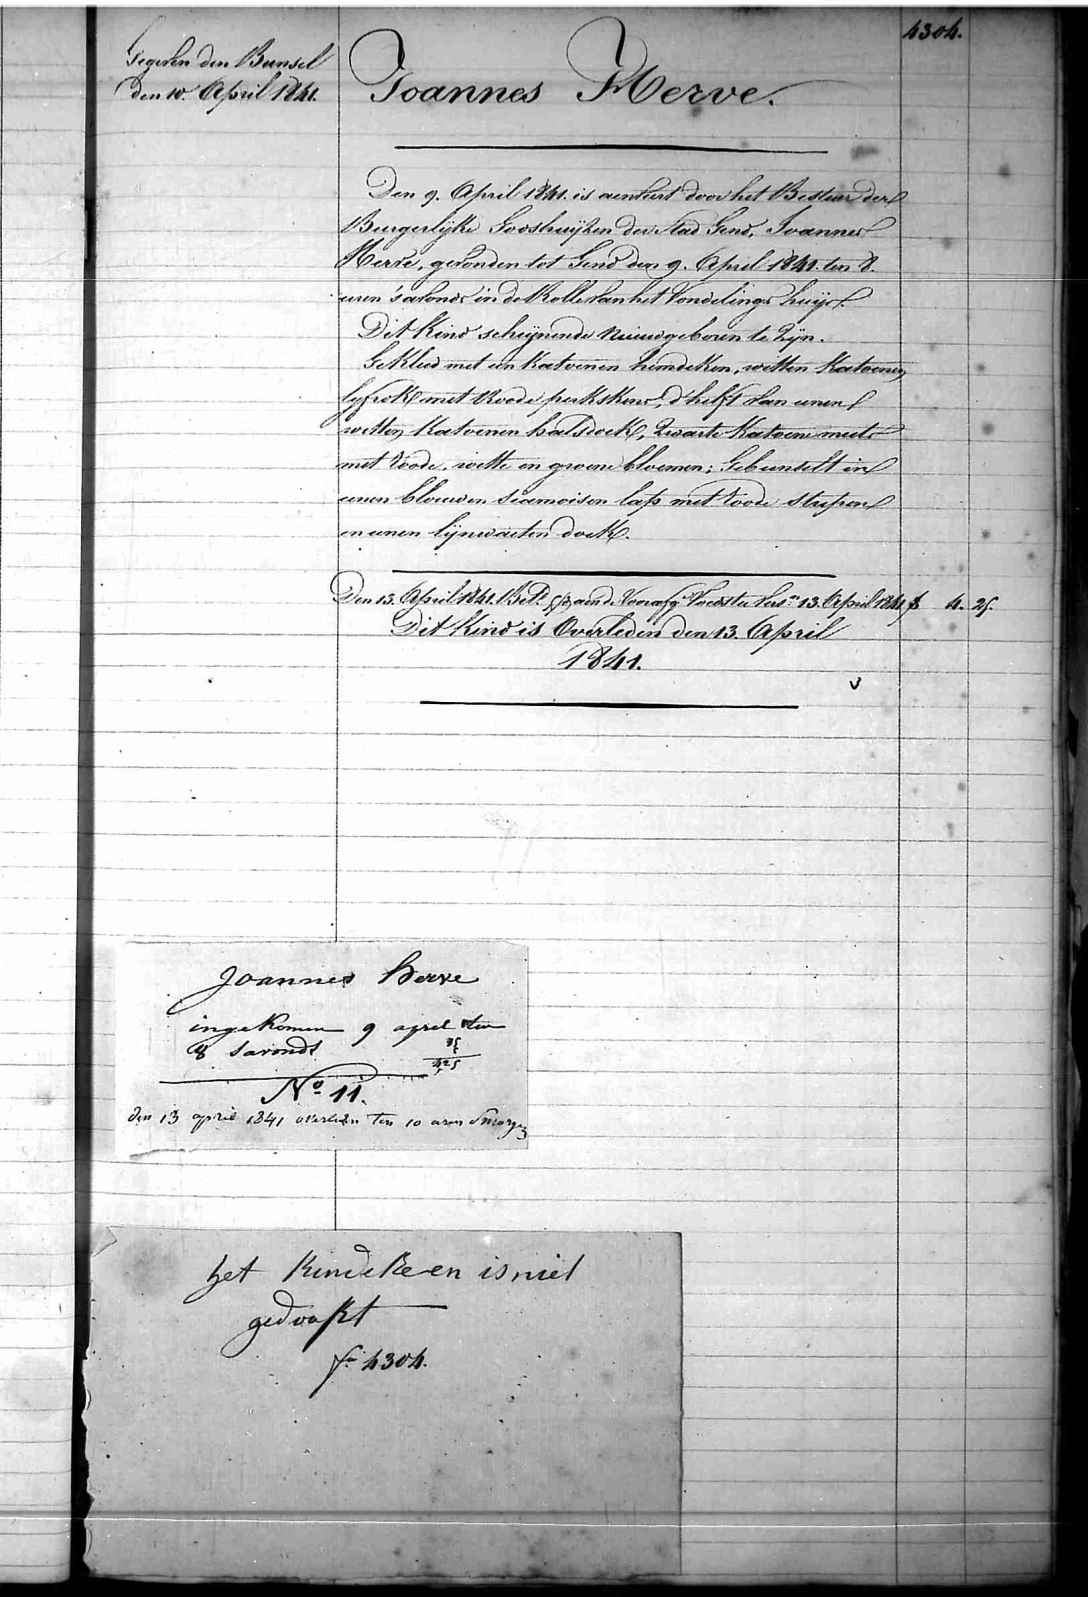 4304.
Gegeven den Bunsel
den 10. April 1841.
Joannes Herve.
Den 9. April 1841. is aenveert door het Bestier der
Burgerlijke Godshuijzen der Stad Gend, Joannes
Herve, gevonden tot Gend den 9. April 1841. ten 8.
uren 's avonds in de Rolle van het Vondelings huijs.
Dit Kind scheijnende nieuwgeboren te zijn.
Gekleed met een Katoenen hemdeken, witten Katoenen
lyfrok met Roode perkskens, d'helft van eenen
witten Katoenen halsdoek, zwarte Katoene muts
met roode, witte en groene bloemen; Gebunselt in
eenen blauwen siamoisen lap met roode streepen
en eenen lijnwaeten doek.
Den 13. April 1841. Bet. aen de Voorafg. Voedster 13. April 1841 f 4. 25.
Dit Kind is Overleden den 13. April
1841.
v
Joannes herve
ingekomen 9 april ten
8 savonds
425
No 11.
den 13 april 1841 overleden ten 10 uren Smorgens
het kindeken is niet
gedoopt
fo 4304.